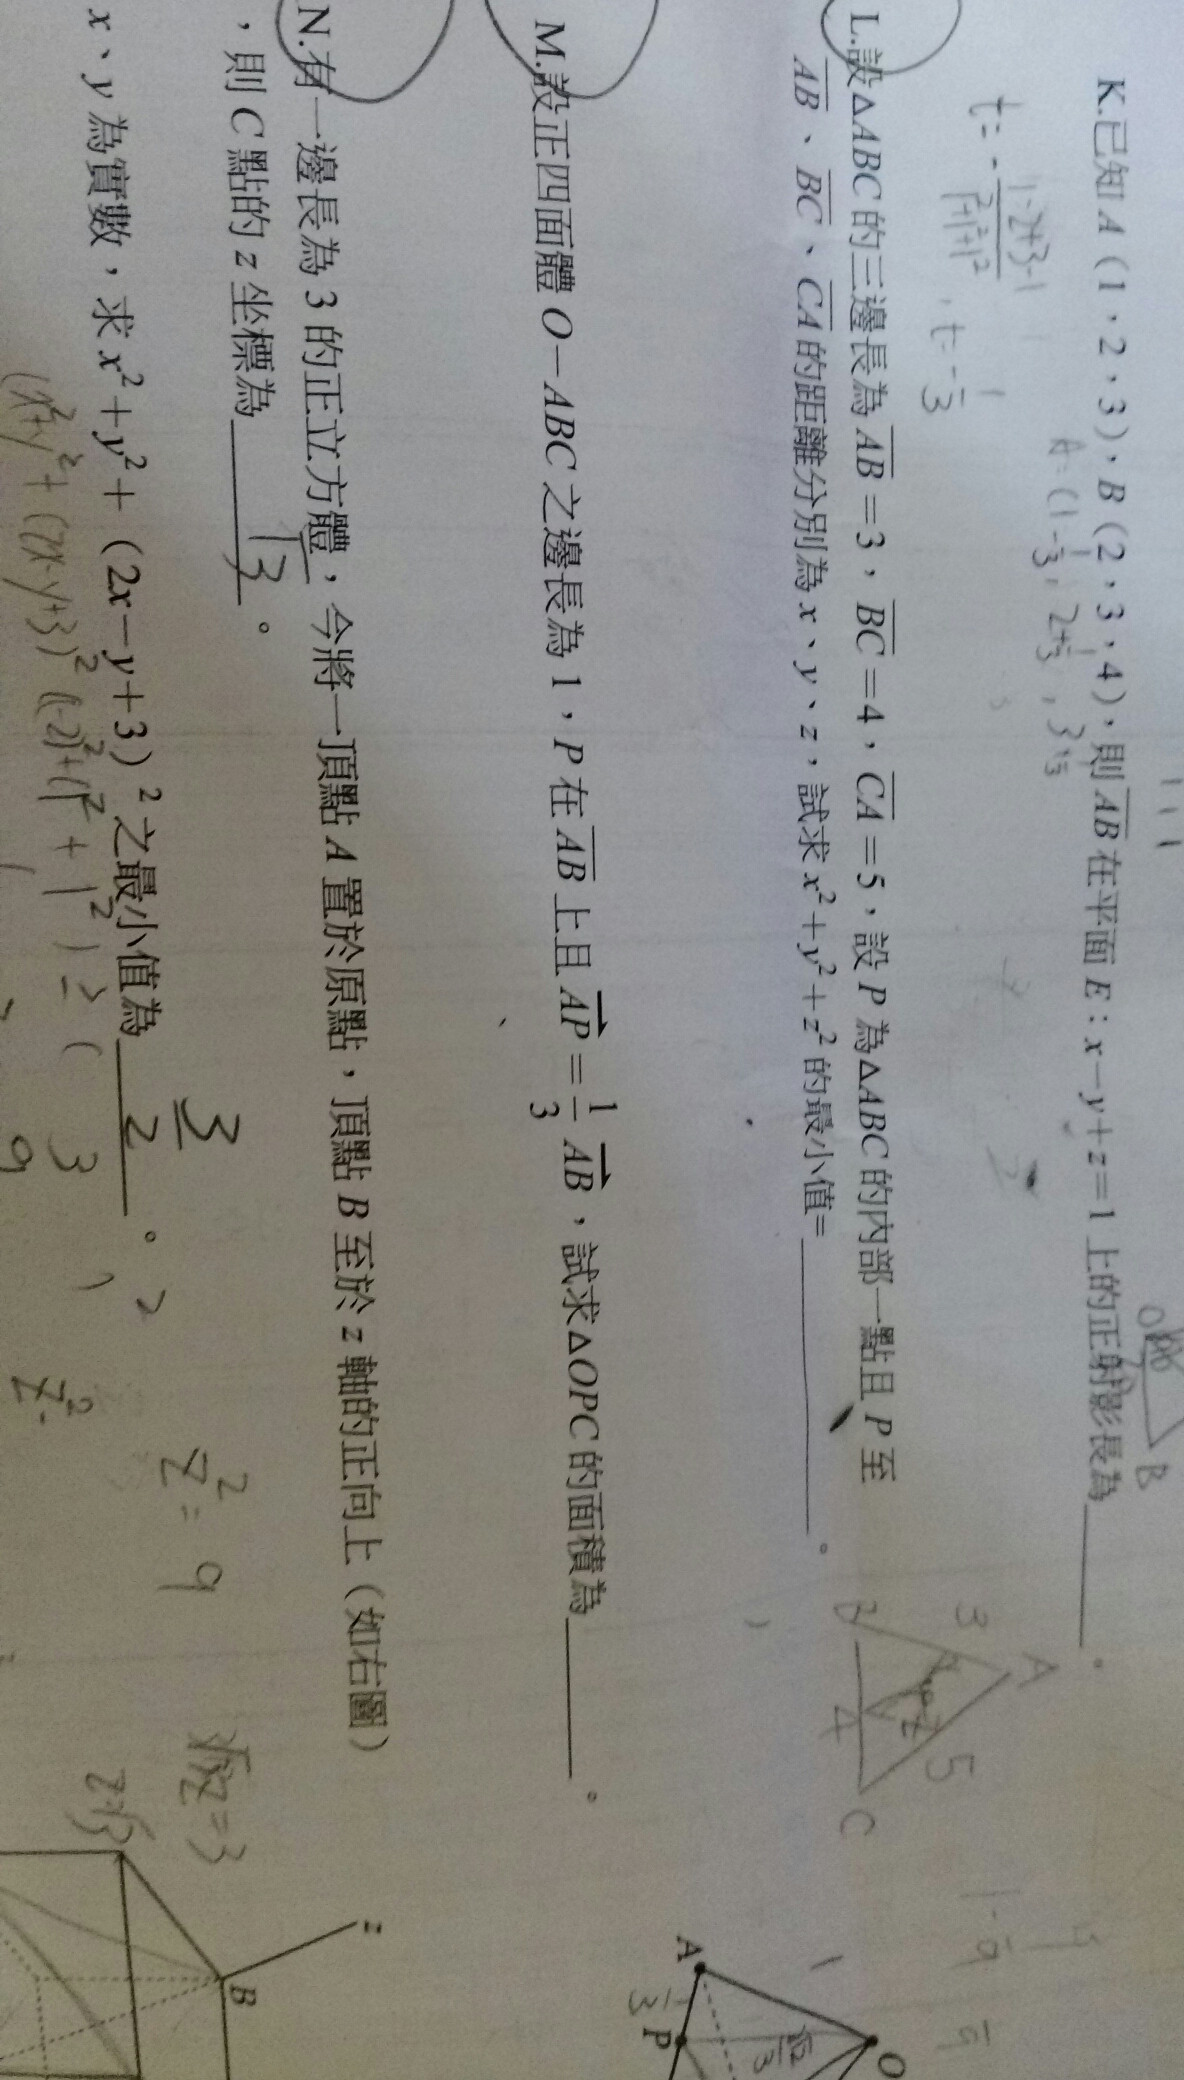 K.已知 A（1，2，3）、B（2，3，4），則 AB 在平面 E：x－y＋z＝1 上的正射影長為＿＿＿＿。
A=(1-1/3, 2+1/3, 3+1/3
t=-(1-2+3-1)/(1²+1²+1²), t=-1/3
L.設△ABC 的三邊長為 AB＝3，BC＝4，CA＝5，設 P 為△ABC 的內部一點且 P 至
AB、BC、CA 的距離分別為 x、y、z，試求 x²＋y²＋z² 的最小值=＿＿＿＿。
A
3
5
4
C
M.設正四面體 O－ABC 之邊長為 1，P 在 AB 上且 AP＝1/3 AB，試求△OPC 的面積為＿＿＿＿。
O
A
P
N.有一邊長為 3 的正立方體，今將一頂點 A 置於原點，頂點 B 至於 z 軸的正向上（如右圖）
，則 C 點的 z 坐標為 √3 。
z
B
x、y 為實數，求 x²＋y²＋（2x－y＋3）² 之最小值為 3/2 。
(x²+y²+(2x-y+3)² ((-2)²+1²+1²) ≥ ( 3 )²
9
z²=9
√3z=3
z=√3